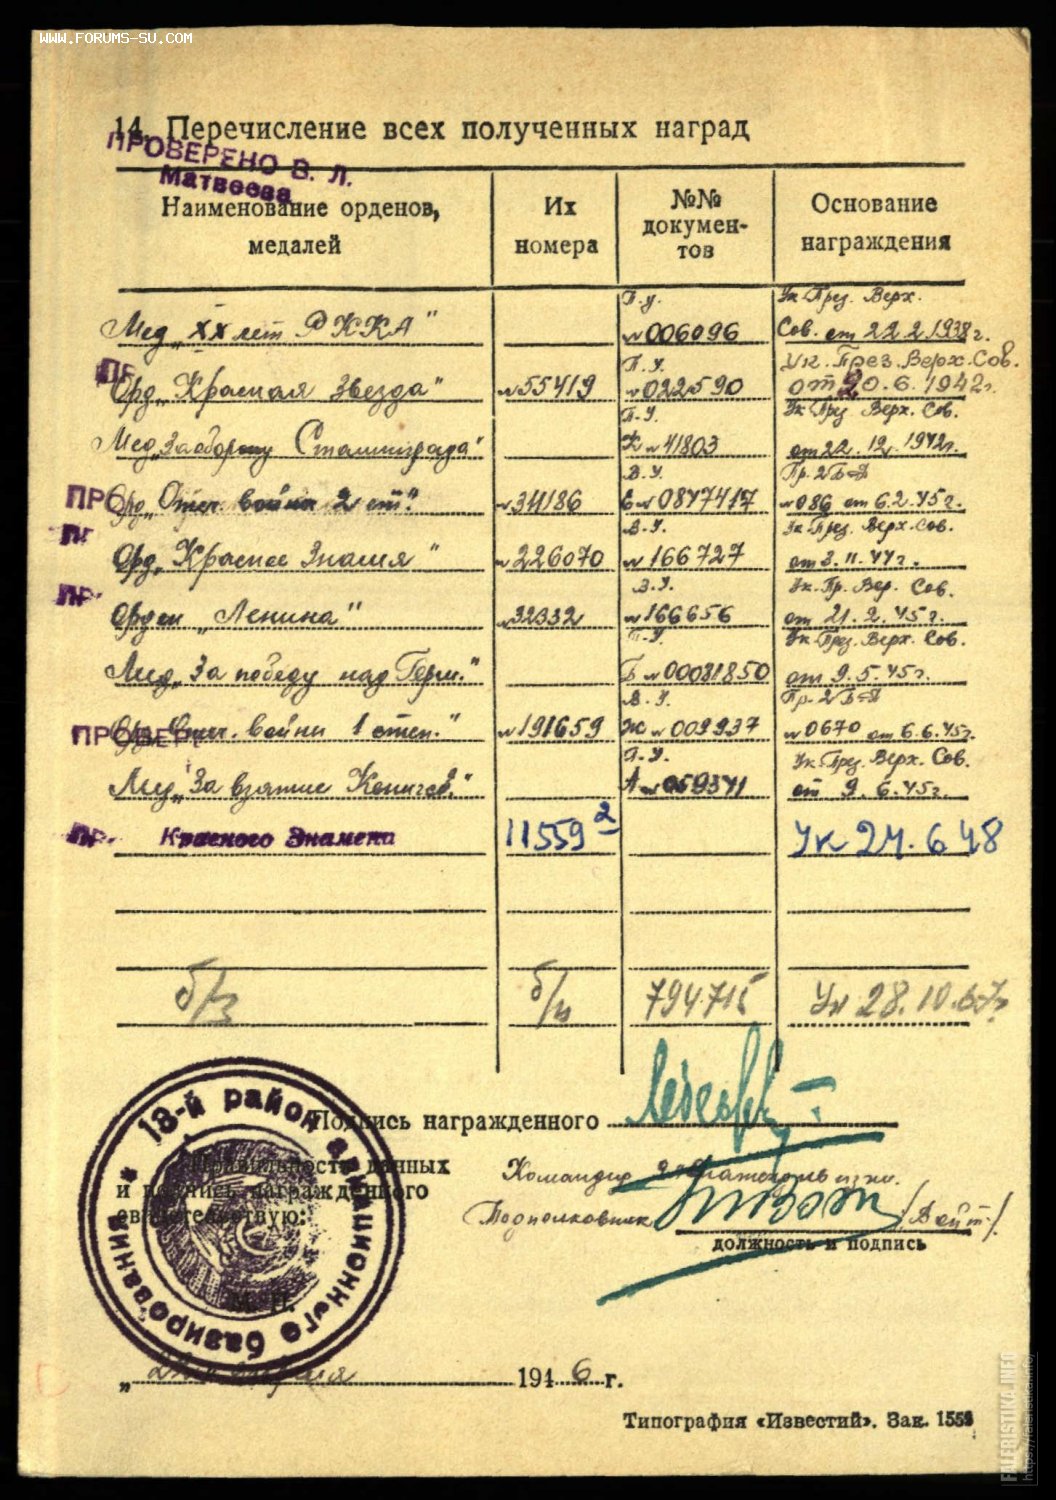 WWW.FORUMS-SU.COM
14. Перечисление всех полученных наград
ПРОВЕРЕНО В. Л.
Матвеева
Наименование орденов, медалей
Их номера
№№ докумен-
тов
Основание награждения
П.у. Ук. През. Верх.
Мед. „XX лет РККА" №006096 Сов. от 22.2.1938г.
П.У. Ук. През. Верх. Сов.
Орд. „Красная Звезда" №55419 №022590 от 20.6.1942г.
П.У. Ук През Верх. Сов.
Мед. „За оборону Сталинграда" №41803 от 22.12.1942г.
В.У. Пр. 2БАД
ПРО Орд „Отеч. война 2 ст." №311186 №0847417 №086 от 6.2.45г.
В.У. Ук. През. Верх. Сов.
Орд. „Красное Знамя" №226070 №166727 от 3.11.44г.
В.У. Ук. Пр. Вер. Сов.
ПР Орден „Ленина" №32332 №166656 от 21.2.45г.
П.У. Ук. През. Верх. Сов.
Мед. „За победу над Герм." Б №00081850 от 9.5.45г.
В.У. Пр. 2БАД
ПРОВЕР Орд. Отеч. войны 1 степ." №191659 Ж №009937 №0670 от 6.6.45г.
П.У. Ук. През. Верх. Сов.
Мед. „За взятие Кенигсб." А №059341 от 9.6.45г.
ПР Красного Знамени 11559 2 Ук 24.6 48
б/з б/н 794715 Ук 28.10.67г
Подпись награжденного
Правильность данных
и подпись награжденного
свидетельствую:
Командир
Подполковник /Войт/
должность и подпись
М. П.
18-й район авиационного базирования
„ 1946 г.
Типография «Известий». Зак. 1558
FALERISTIKA.INFO